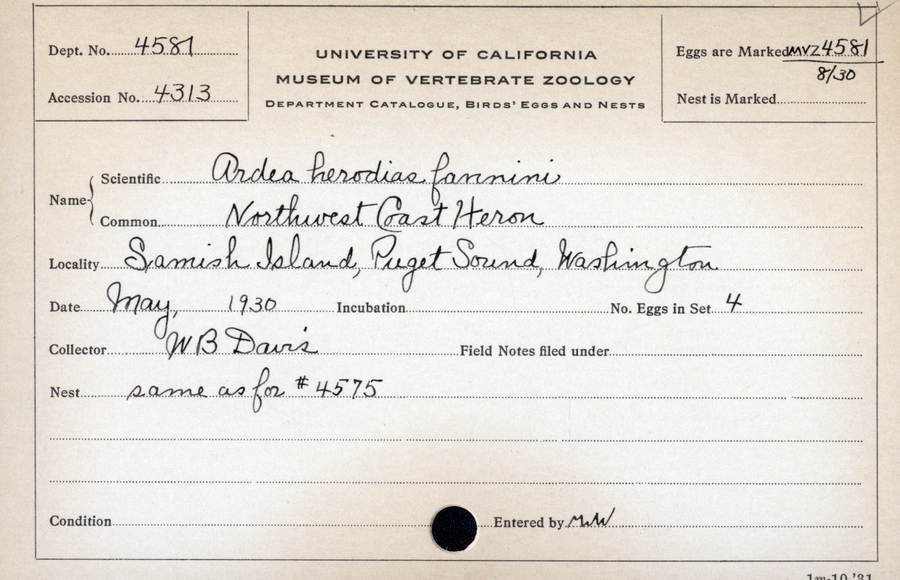 Dept. No. 4581
Accession No. 4313
UNIVERSITY OF CALIFORNIA
MUSEUM OF VERTEBRATE ZOOLOGY
DEPARTMENT CATALOGUE, BIRDS' EGGS AND NESTS
Eggs are Marked MVZ 4581
8/30
Nest is Marked
Name
Scientific Ardea herodias fannini
Common Northwest Coast Heron
Locality Samish Island, Puget Sound, Washington
Date May, 1930 Incubation No. Eggs in Set 4
Collector W B Davis Field Notes filed under
Nest same as for # 4575
Condition Entered by MW
1m-10,'31